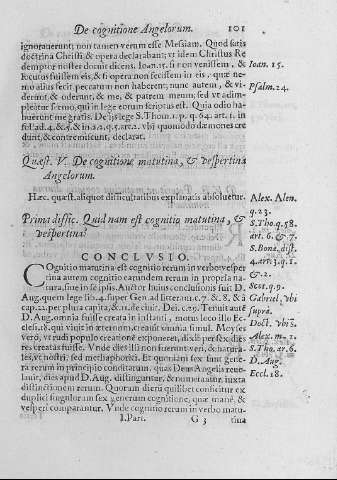 De cognitione Angelorum. 101
ignorauerunt; non tamen verum esse Messiam. Quod satis
doctrina Christi & opera declarabant; vt idem Christus Re
demptor noster docuit dicens. Ioan. 15. si non venissem, &
locutus fuissem eis, & si opera non fecissem in eis, quæ ne-
mo alius fecit peccatum non haberent; nunc autem, & vi-
derunt, & oderunt, & me, & patrem meum; sed vt adim-
pleatur sermo, qui in lege eorum scriptus est. Quia odio ha-
buerunt me gratis. De his lege S. Thom. 1. p. q. 64. art. 1. in
sol. ad. 4. & 5. & in 2. q. 5. art. 2. vbi quomodo dæmones cre
dunt, & contremiscunt, declarat.
Quæst. V. De cognitione matutina, & vespertina
Angelorum.
Hæc quæst. aliquot difficultatibus explanatis absoluetur.
Prima diffic. Quid nam est cognitio matutina, &
vespertina?
CONCLVSIO.
Cognitio matutina est cognitio rerum in verbo vesper
tina autem cognitio earundem rerum in propria na
tura, siue in seipsis. Auctor huius conclusionis fuit D.
Aug. quem lege lib. 4. super Gen. ad litter. a c. 7. & 8. & à
cap. 22. per plura capita, & 11. de ciuit. Dei. c. 29. Tenuit autē
D. Aug. omnia fuisse creata in instanti, motus loco illo Ec-
clesi. 18. qui viuit in æternum, creauit omnia simul. Moyses
verò, vt rudi populo creationē exponeret, dixit per sex dies
res creatas fuisse. Vnde dies illi non fuerunt veri, & natura-
les, vt nostri: sed methaphorici. Et quoniam sex sunt gene
ra rerum in principio conditarum, quas Deus Angelis reue-
lauit, dies apud D. Aug. distinguntur, & numerantur iuxta
distinctionem rerum. Quorum dierū quilibet conficitur ex
duplici singulorum sex generum cognitione, quæ manè, &
vesperi comparantur. Vnde cognitio rerum in verbo matu-
I. Part. G 3 tina
Ioan. 15.
Psalm. 24.
Alex. Alen.
q. 23.
S. Tho. q. 58.
art. 6. & 7.
S. Bona. dist.
4. art. 3. q. 1.
& 2.
Scot. q. 9.
Gabriel, vbi
suprà.
Doct. vbi s.
Alex. m. 1.
S. Tho. ar. 6.
D. Aug.
Eccl. 18.